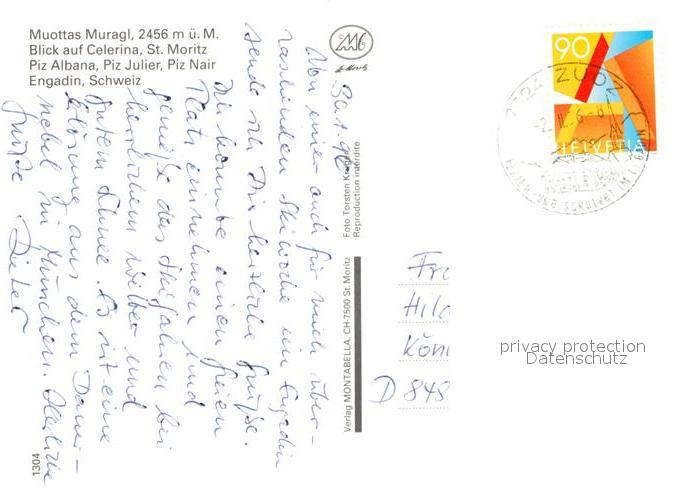 Muottas Muragl, 2456 m ü. M.
Blick auf Celerina, St. Moritz
Piz Albana, Piz Julier, Piz Nair
Engadin, Schweiz
30.1.96
Von einer auch für mich über-
raschenden Skiwoche im Engadin
sende ich Dir herzliche Grüße.
Ich konnte einen freien
Platz einnehmen und
genieße das Skifahren bei
herrlichem Wetter und
gutem Schnee. Es ist eine
Erlösung aus dem Dauer-
nebel in München. Herzliche
Grüße
Dieter
1304
Foto Torsten
Reproduction interdite
Verlag MONTABELLA, CH-7500 St. Moritz
St. Moritz
90
HELVETIA
7524 ZUOZ
Fra
Hild
Köni
D 848
privacy protection
Datenschutz